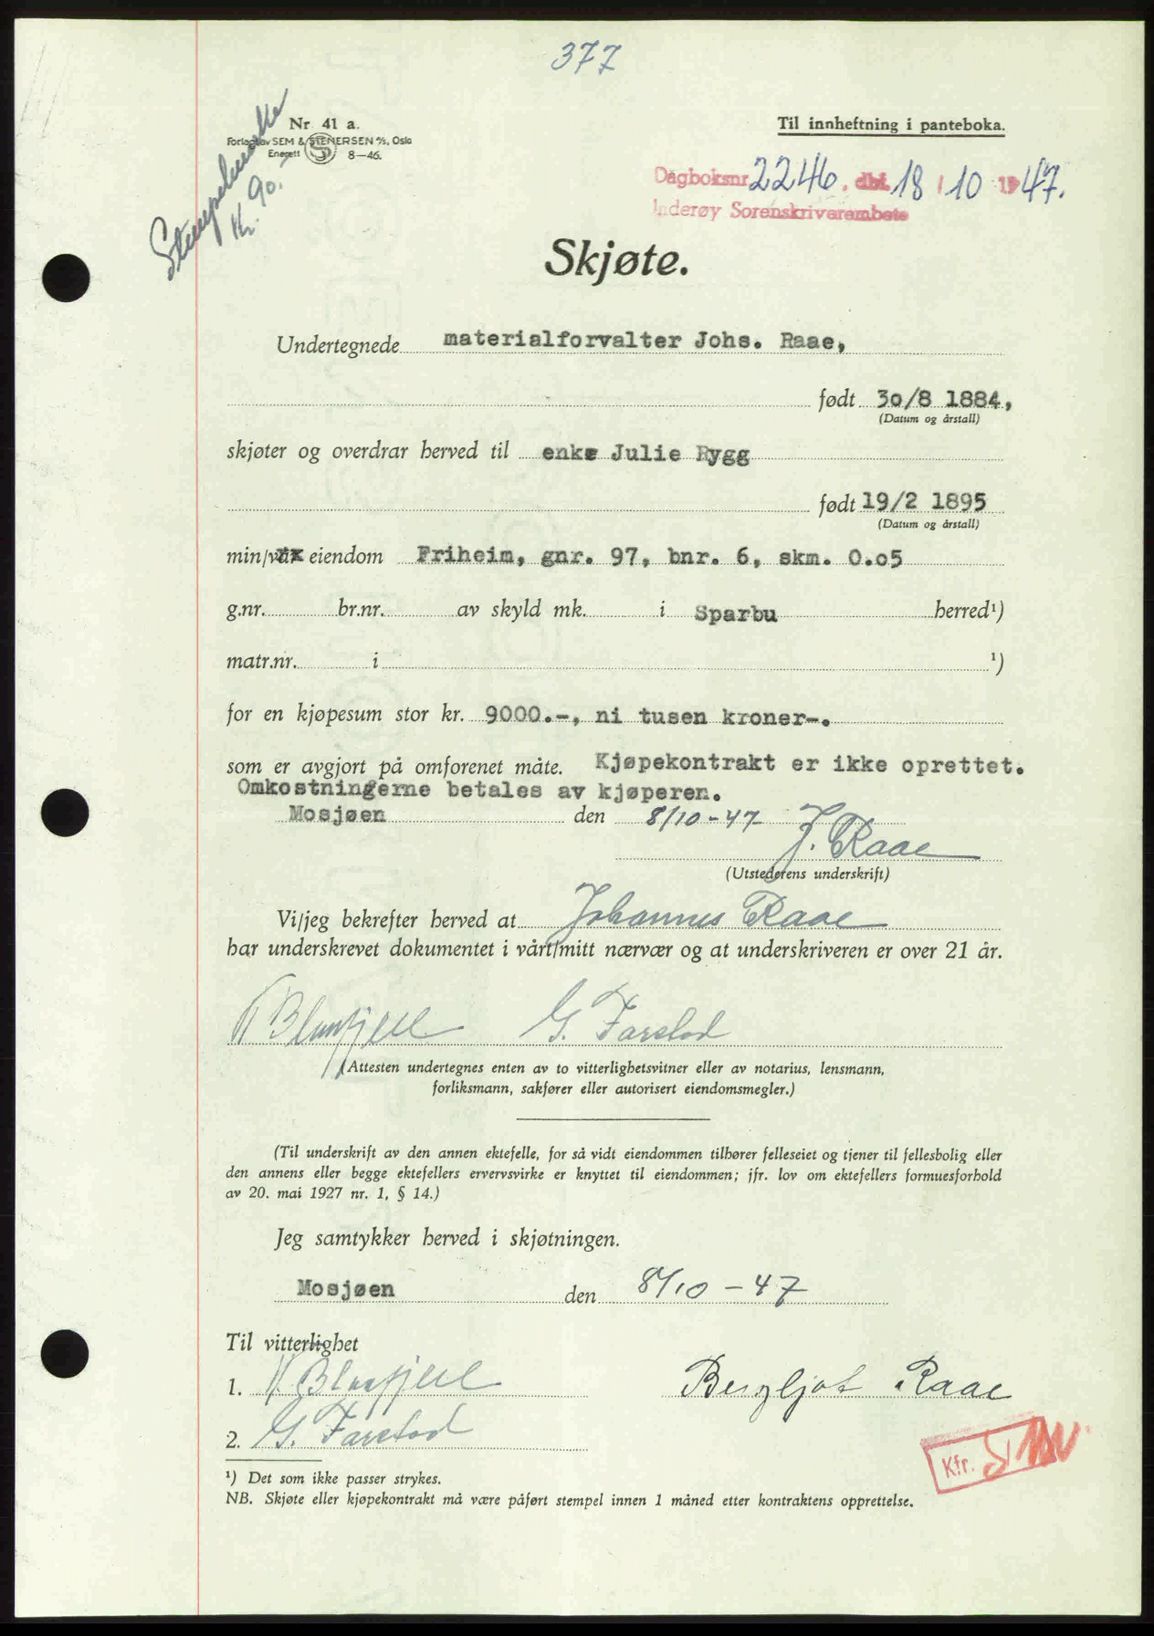 377
Nr 41 a.
Forlagt av SEM & STENERSEN A/S, Oslo
Enerett 8-46.
Til innheftning i panteboka.
Stempelmerke
Kr. 90.-
Dagboksnr 2246. dbf. 18/10 1947.
Inderøy Sorenskriverembete
Skjøte.
Undertegnede materialforvalter Johs. Raae,
født 30/8 1884,
(Datum og årstall)
skjøter og overdrar herved til enke Julie Rygg
født 19/2 1895
(Datum og årstall)
min/vår eiendom Friheim, gnr. 97, bnr. 6, skm. 0.05
g.nr. br.nr. av skyld mk. i Sparbu herred¹)
matr.nr. i ¹)
for en kjøpesum stor kr. 9000.-, ni tusen kroner-.
som er avgjort på omforenet måte. Kjøpekontrakt er ikke oprettet.
Omkostningerne betales av kjøperen.
Mosjøen den 8/10-47
J. Raae
(Utstederens underskrift)
Vi/jeg bekrefter herved at Johannes Raae
har underskrevet dokumentet i vårt/mitt nærvær og at underskriveren er over 21 år.
Blaafjell G. Farstad
(Attesten undertegnes enten av to vitterlighetsvitner eller av notarius, lensmann,
forliksmann, sakfører eller autorisert eiendomsmegler.)
(Til underskrift av den annen ektefelle, for så vidt eiendommen tilhører felleseiet og tjener til fellesbolig eller
den annens eller begge ektefellers ervervsvirke er knyttet til eiendommen; jfr. lov om ektefellers formuesforhold
av 20. mai 1927 nr. 1, § 14.)
Jeg samtykker herved i skjøtningen.
Mosjøen den 8/10-47
Til vitterlighet
1. Blaafjell Bergljot Raae
2. G. Farstad
Kfr.
¹) Det som ikke passer strykes.
NB. Skjøte eller kjøpekontrakt må være påført stempel innen 1 måned etter kontraktens opprettelse.